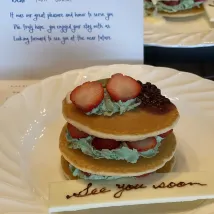 It was our great pleasure and honor to serve you
We truly hope you enjoyed your stay with us
Looking forward to see you at the near future
See you soon